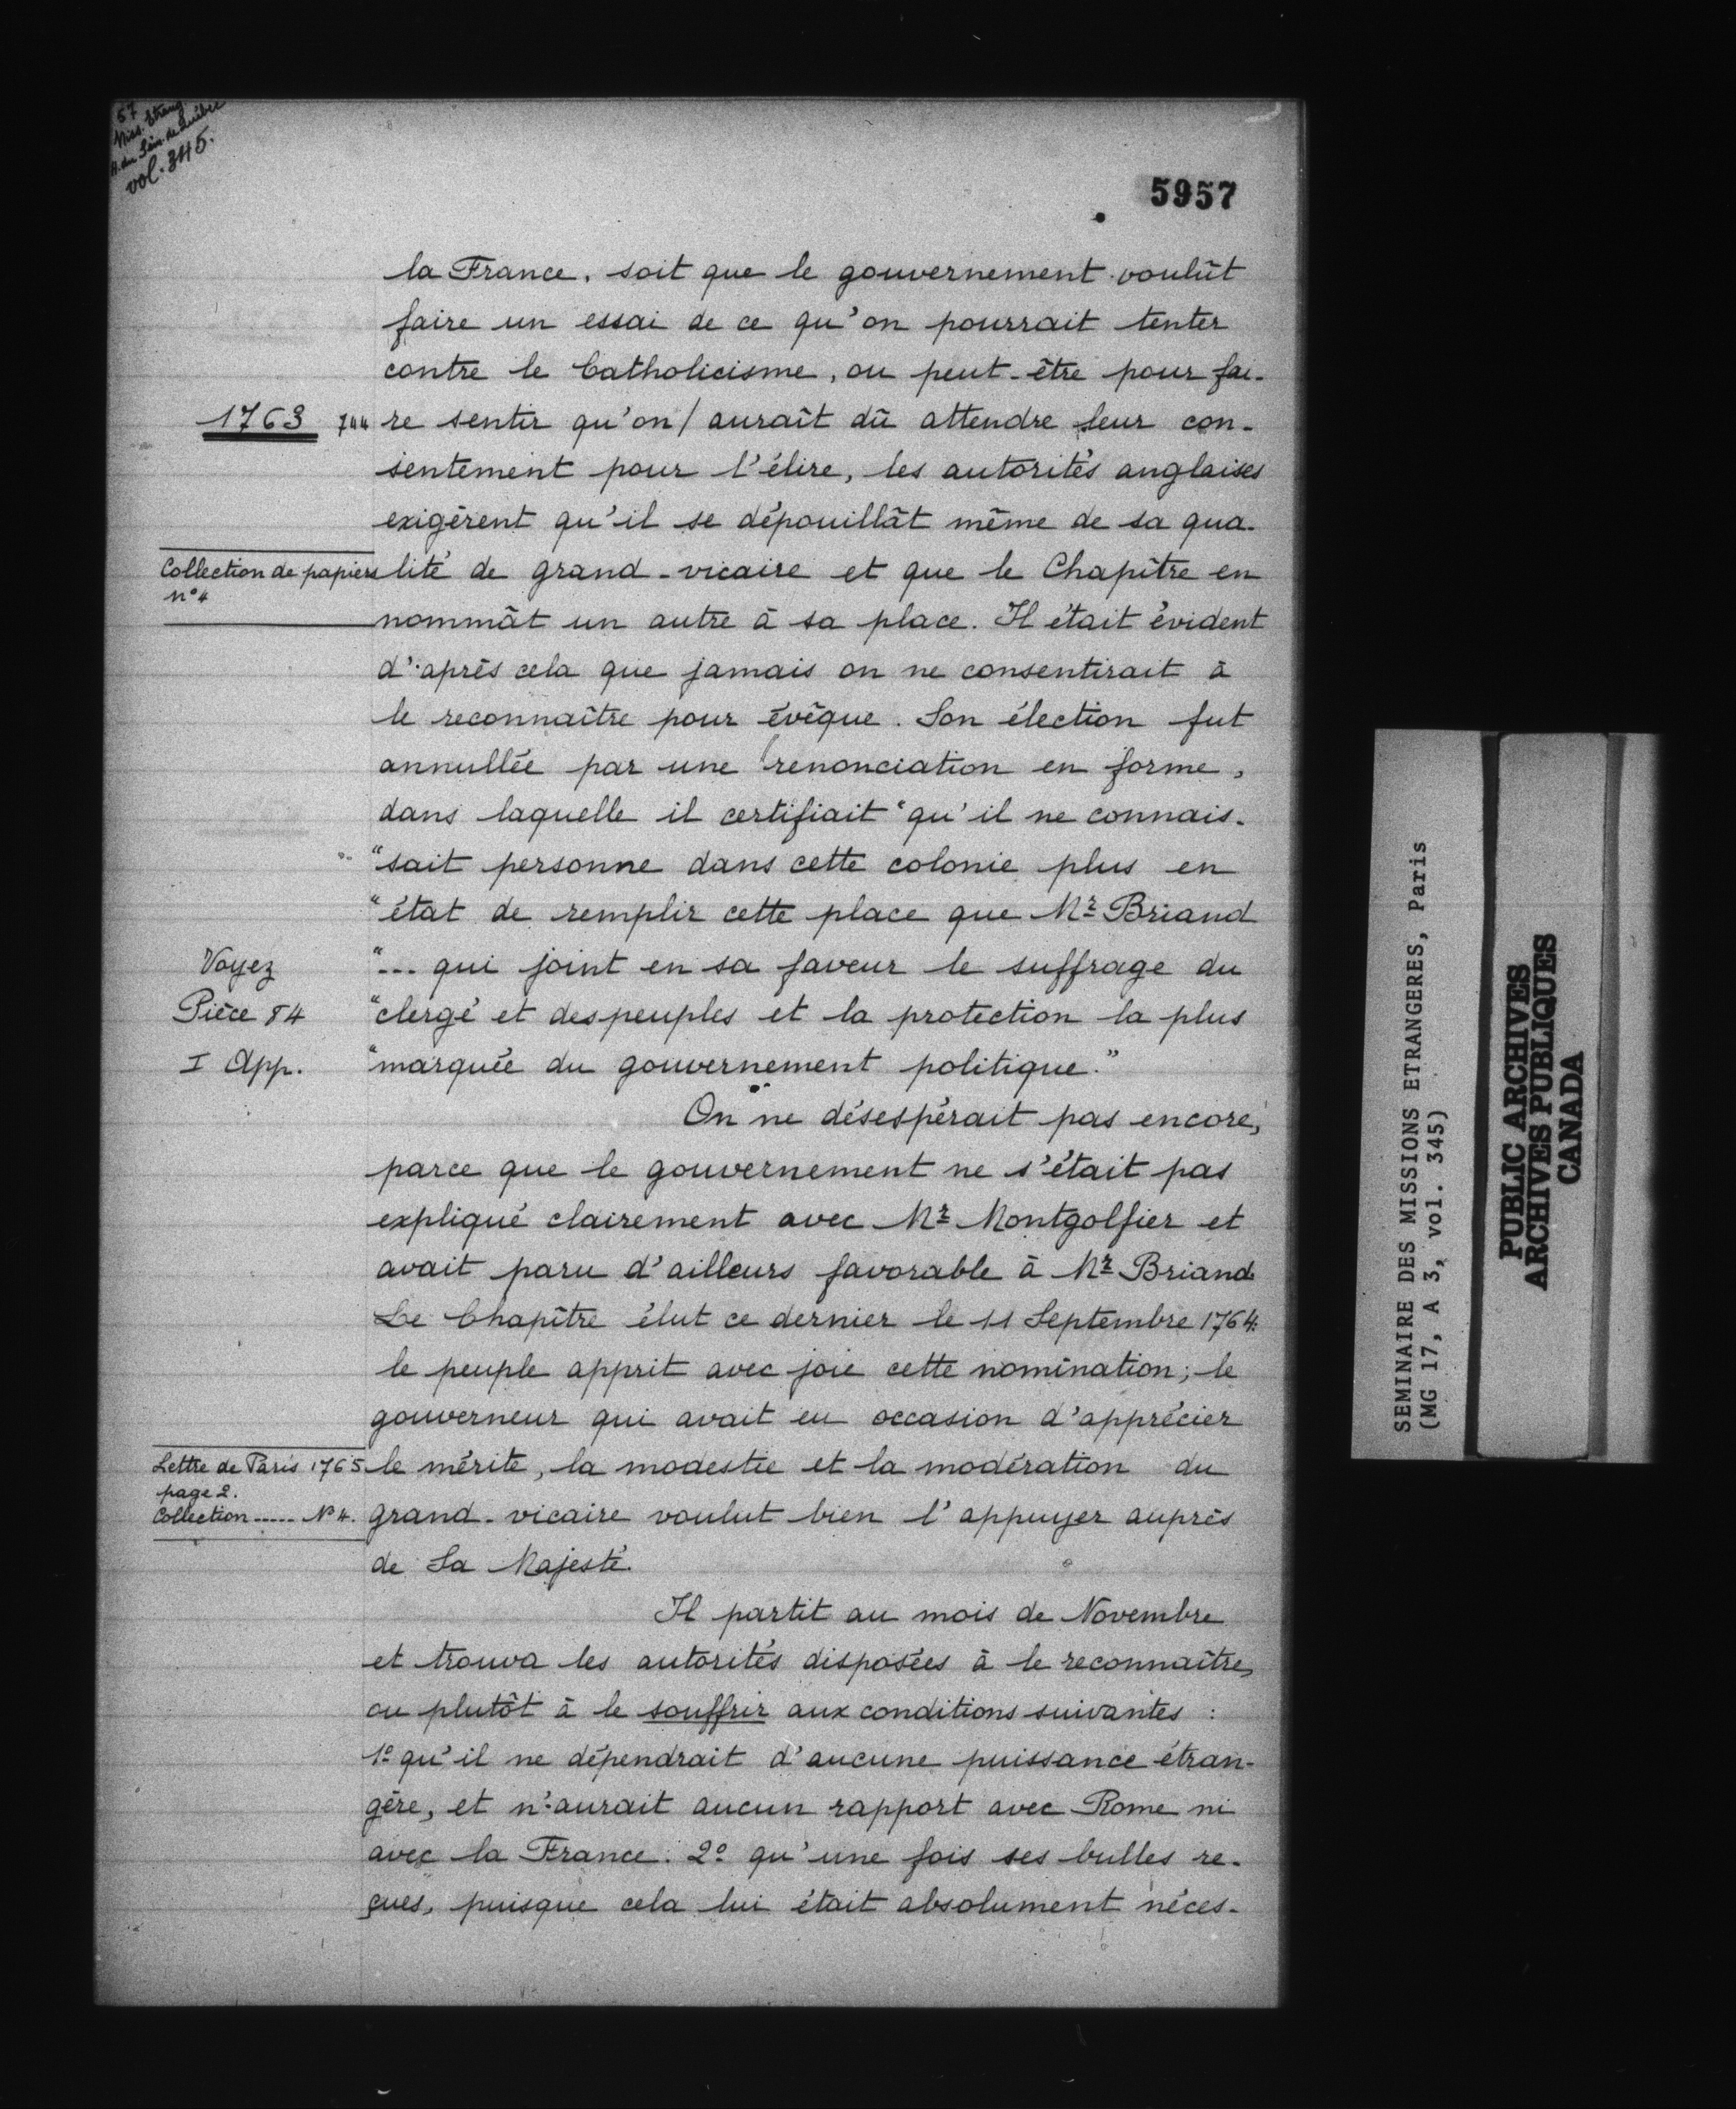 57
Miss. Etrang
H. du Sém. de Québec
vol. 345.
5957
la France, soit que le gouvernement voulût
faire un essai de ce qu'on pourrait tenter
contre le Catholicisme, ou peut-être pour fai-
1763 744 re sentir qu'on / auraît dû attendre leur con-
sentement pour l'élire, les autorités anglaises
exigèrent qu'il se dépouillât même de sa qua-
Collection de papiers lité de grand-vicaire et que le Chapître en
n° 4
nommât un autre à sa place. Il était évident
d'après cela que jamais on ne consentirait à
le reconnaître pour évêque. Son élection fut
annullée par une renonciation en forme,
dans laquelle il certifiait "qu'il ne connais-
"sait personne dans cette colonie plus en
"état de remplir cette place que Mr Briand
Voyez "... qui joint en sa faveur le suffrage du
Pièce 84 "clergé et des peuples et la protection la plus
I App. "marquée du gouvernement politique."
On ne désespérait pas encore,
parce que le gouvernement ne s'était pas
expliqué clairement avec Mr Montgolfier et
avait paru d'ailleurs favorable à Mr Briand
Le Chapître élut ce dernier le 11 Septembre 1764.
le peuple apprit avec joie cette nomination; le
gouverneur qui avait eu occasion d'apprécier
Lettre de Paris 1765 le mérite, la modestie et la modération du
page 2.
Collection ..... N° 4. grand-vicaire voulut bien l'appuyer auprès
de Sa Majesté.
Il partit au mois de Novembre
et trouva les autorités disposées à le reconnaître,
ou plutôt à le souffrir aux conditions suivantes :
1° qu'il ne dépendrait d'aucune puissance étran-
gère, et n'aurait aucun rapport avec Rome ni
avec la France. 2° qu'une fois ses bulles re-
çues, puisque cela lui était absolument néces-
SEMINAIRE DES MISSIONS ETRANGERES, Paris
(MG 17, A 3, vol. 345)
PUBLIC ARCHIVES
ARCHIVES PUBLIQUES
CANADA